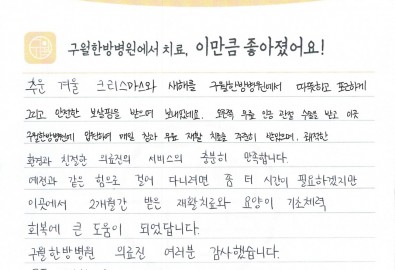 구월한방병원에서 치료, 이만큼 좋아졌어요!
추운 겨울 크리스마스와 새해를 구월한방병원에서 따뜻하고 포근하게
그리고 안전한 보살핌을 받으며 보내었네요. 오른쪽 무릎 인공 관절 수술을 받고 이곳
구월한방병원에 입원하여 매일 침과 무릎 재활 치료를 꾸준히 받았으며, 쾌적한
환경과 친절한 의료진의 서비스의 충분히 만족합니다.
예전과 같은 힘으로 걸어 다니려면 좀 더 시간이 필요하겠지만
이곳에서 2개월간 받은 재활치료와 요양이 기초체력
회복에 큰 도움이 되었답니다.
구월한방병원 의료진 여러분 감사했습니다.